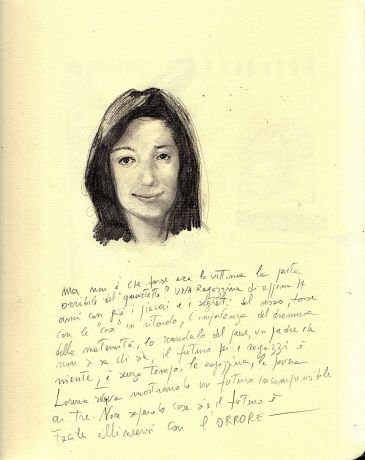 Ma non è che forse era la vittima la parte
orribile del quartetto? UNA Ragazzina di appena 14
anni con già i piaceri e i segreti del sesso, forse
con le "cose" in ritardo, l'impotenza del dramma
della maternità, lo scandalo del paese, un padre che
non si sa chi sia, il futuro per i ragazzi è
niente, è senza tempo, la ragazzina, la povera
Lorena stava mostrando un futuro incomprensibile
ai tre. Non sapendo cosa sia il futuro è
facile allinearsi con l'ORRORE